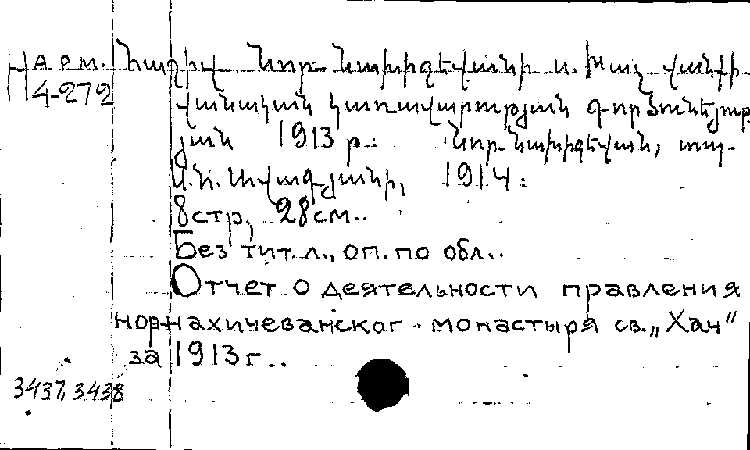 Арм. Հաշիվ Նոր-Նախիջեվանի ս. Խաչ վանքի
4-272 վանական կառավարության գործունեյու-
յան 1913 թ.: Նոր-Նախիջեվան, տպ.
Ս. Հ. Ավագյանի, 1914:
8стр, 28см..
Без тит.л., оп.по обл..
Отчет о деятельности правления
норнахичеванског. монастыря св. „Хач"
за 1913г..
3437, 3438